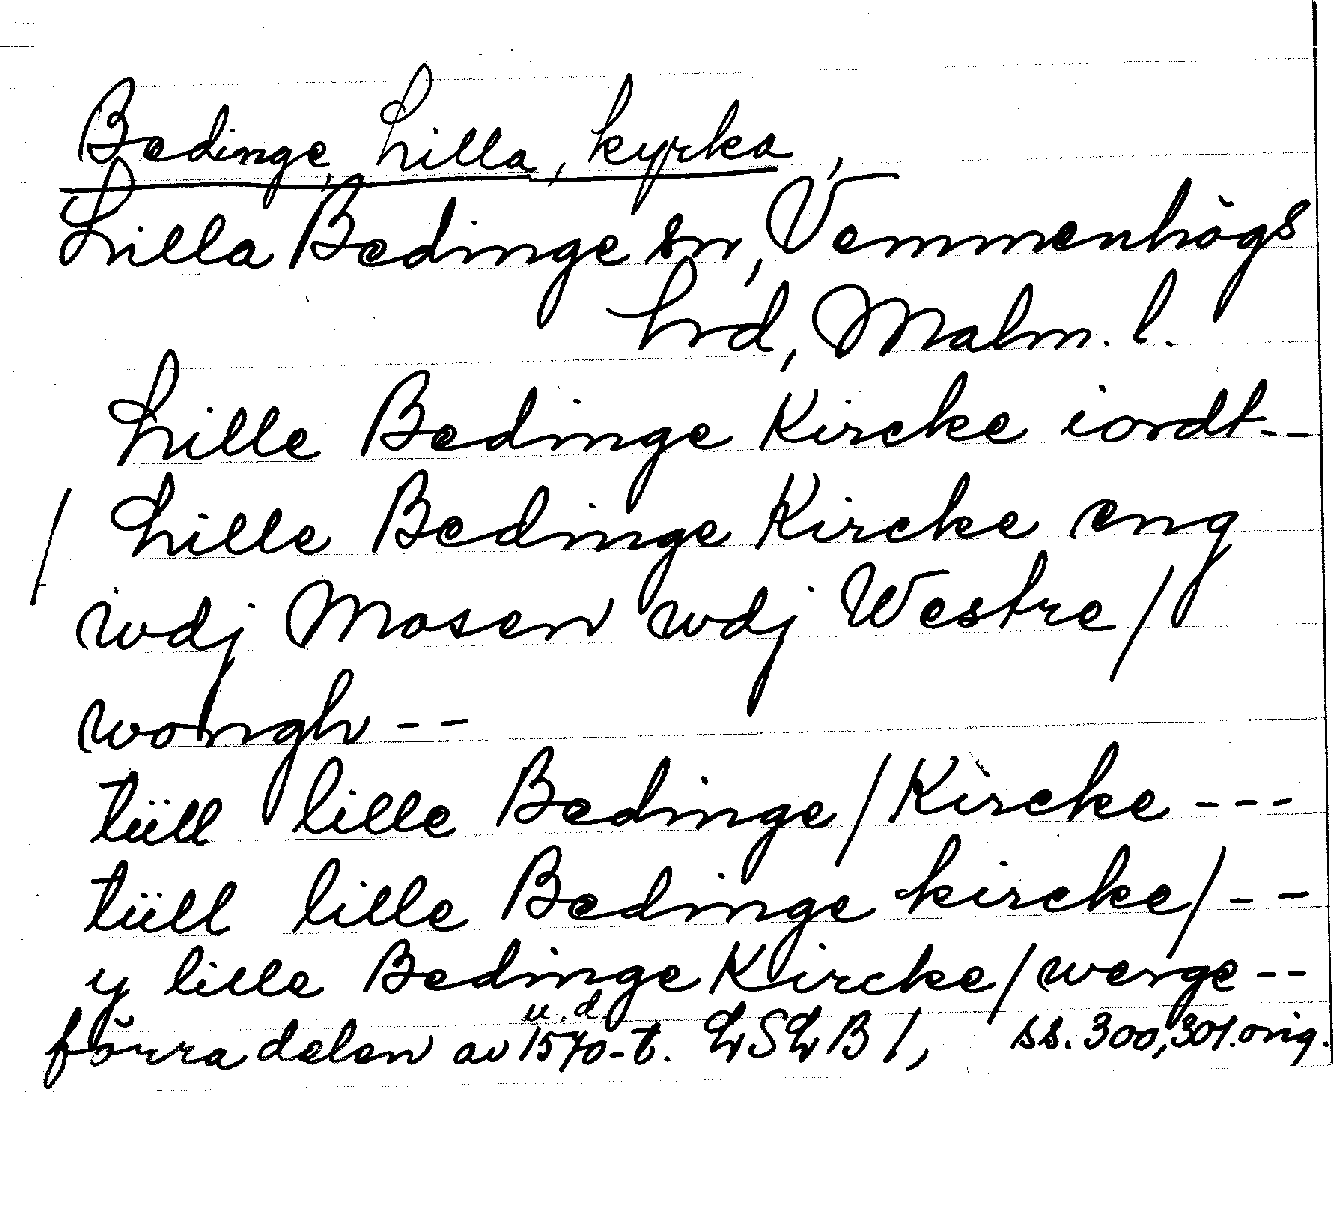 Bedinge, Lilla, kyrka,
Lilla Bedinge sn, Vemmenhögs
hrd, Malm. l.
Lille Bedinge Kircke iordt--
/ Lille Bedinge Kircke eng
wdj Mosen wdj Westre/
wongh--
tüll lille Bedinge/Kircke---
tüll lille Bedinge kircke/--
y lille Bedinge Kircke/werge--
u. d.
förra delen av 1570-t. LSLB 1, ss. 300, 301. orig.